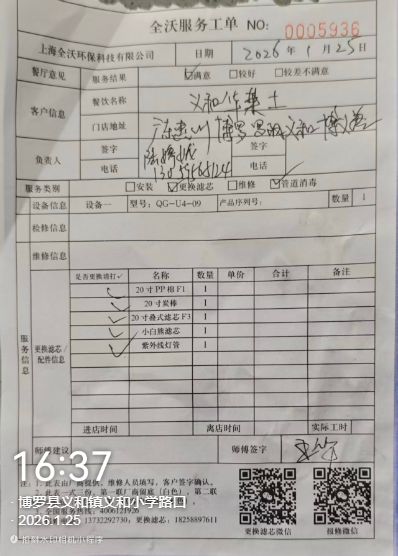 全沃服务工单 NO: 0005936
上海全沃环保科技有限公司 日期 2026年1月25日
餐厅意见 服务结果 ☑满意 □较好 □较差不满意
客户信息 餐饮名称 义和华莱士
门店地址 广东惠州博罗县
负责人 签字
电话
服务类别 □安装 ☑更换滤芯 □维修 ☑管道消毒
设备信息 设备一 型号: QG-U4-09 产品序列号: 数量 1
检修信息
维修信息
服务信息 更换滤芯/配件信息
是否更换请打✓ 名称 数量 单价 合计 备注
✓ 20寸PP棉F1 1
✓ 20寸炭棒 1
✓ 20寸叠式滤芯F3 1
✓ 小白熊滤芯 1
✓ 紫外线灯管 1
进店时间 离店时间 实际工时
师傅建议 师傅签字
16:37
1. 此表由厂商提供,维修人员填写,客户签字确认。
2. 此表一式二份,第一联厂商保底(白色),第二联
博罗县义和镇义和小学路口
2026.1.25
13732292730; 更换滤芯: 18258897611
更换滤芯微信 报修微信
按刻水印相机小程序